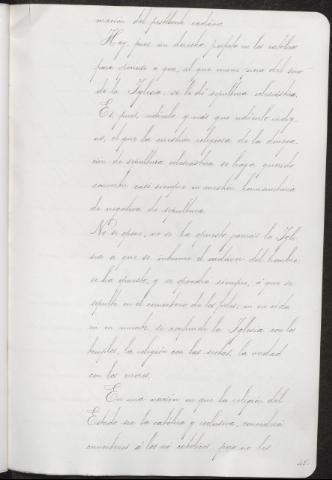 mación del pestilente cadáver.
Hay, pues un derecho perfecto en los católicos
para oponerse á que, al que muere fuera del seno
de la Iglesia, se le dé sepultura eclesiástica.
Es, pues, ridículo y más que ridículo indig-
no, el que la cuestión religiosa de la denega-
ción de sepultura eclesiástica se haya querido
convertir casi siempre en cuestión humanitaria
de negativa de sepultura.
No se opone, no se ha opuesto jamás la Igle-
sia á que se inhume el cadáver del hombre;
se ha opuesto, y se opondrá siempre, á que se
sepulte en el cementerio de los fieles, ni en vida
ni en muerte se confunde la Iglesia con los
templos, la religión con las sectas, la verdad
con los errores.
En una nación en que la religión del
Estado sea la católica y exclusiva, convendrá
cementerios á los no católicos, pero no les